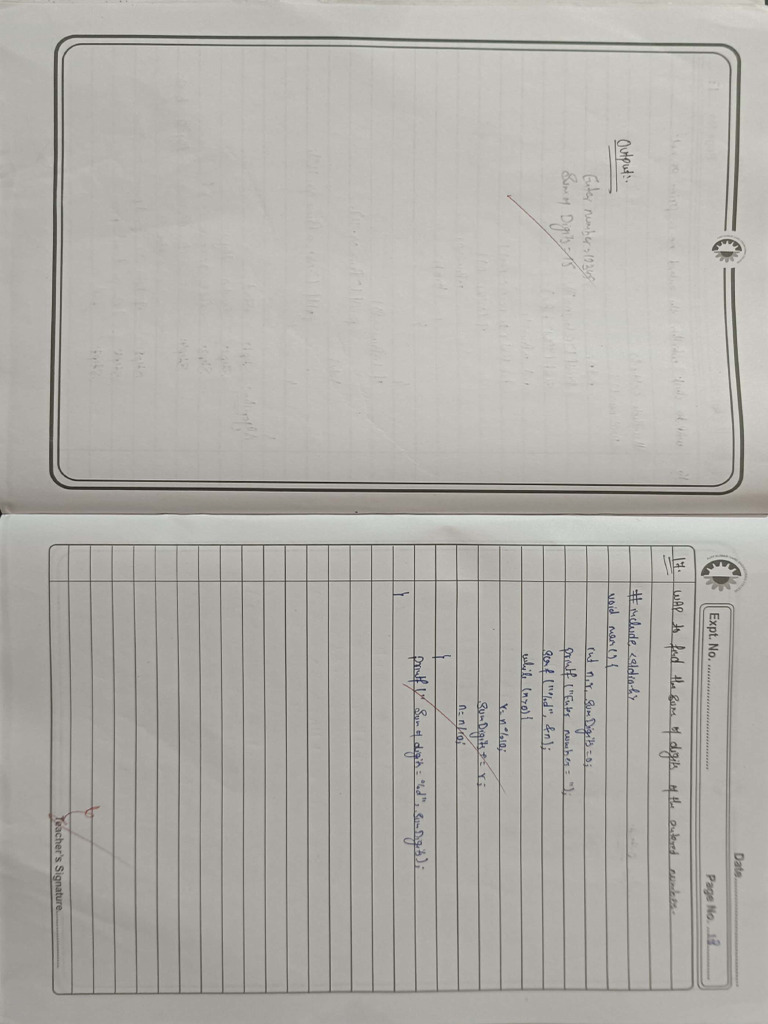 Output:-
Enter number=12345
Sum of Digits=15
Date
Expt. No.
Page No. 18
17. WAP to find the sum of digits of the entered number.
#include <stdio.h>
void main() {
int n,r, sumDigits=0;
printf ("Enter number= ");
scanf ("%d", &n);
while (n>0) {
r= n%10;
sumDigits += r;
n= n/10;
}
printf (" Sum of digits = %d", sumDigits);
}
Teacher's Signature